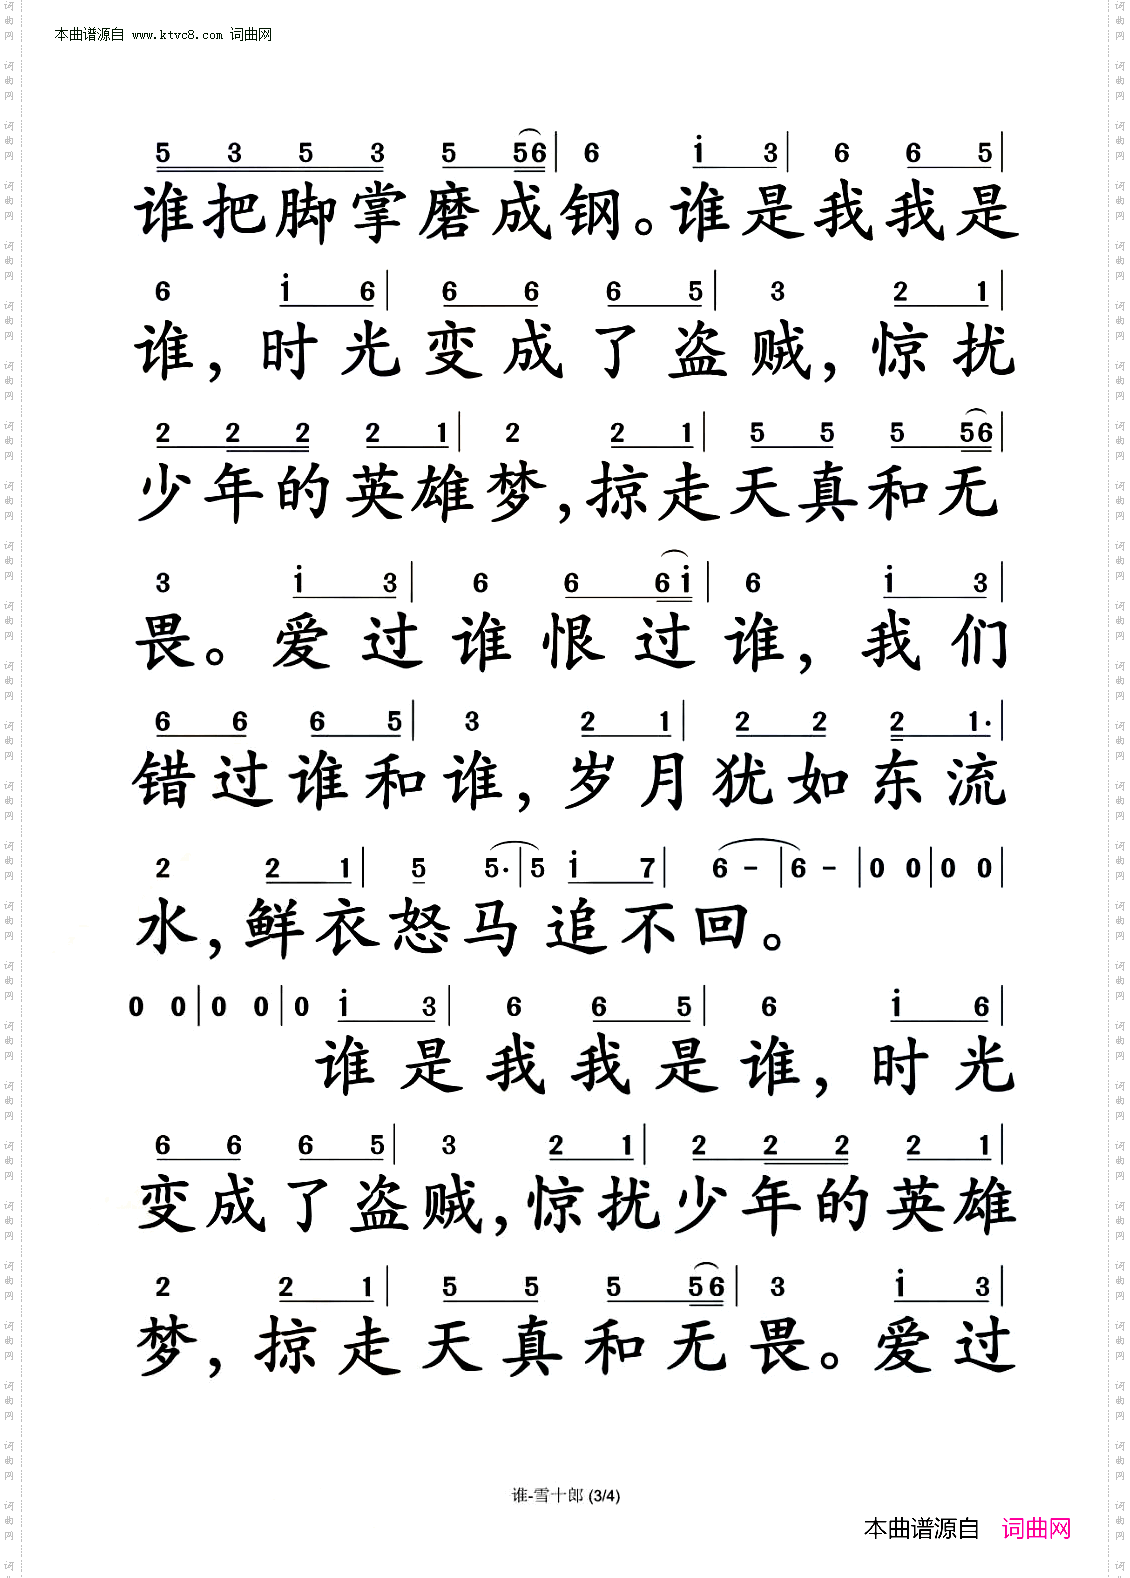 本曲谱源自 www.ktvc8.com 词曲网
5 3 5 3 5 56| 6 i 3| 6 6 5|
谁把脚掌磨成钢。谁是我我是
6 i 6| 6 6 6 5| 3 2 1|
谁，时光变成了盗贼，惊扰
2 2 2 2 1| 2 2 1| 5 5 5 56|
少年的英雄梦，掠走天真和无
3 i 3| 6 6 6i| 6 i 3|
畏。爱过谁恨过谁，我们
6 6 6 5| 3 2 1| 2 2 2 1·|
错过谁和谁，岁月犹如东流
2 2 1| 5 5·|5 i 7| 6 -|6 -|0 0|0 0|
水，鲜衣怒马追不回。
0 0|0 0|0 i 3| 6 6 5| 6 i 6|
谁是我我是谁，时光
6 6 6 5| 3 2 1| 2 2 2 2 1|
变成了盗贼，惊扰少年的英雄
2 2 1| 5 5 5 56| 3 i 3|
梦，掠走天真和无畏。爱过
谁-雪十郎 (3/4)
本曲谱源自 词曲网